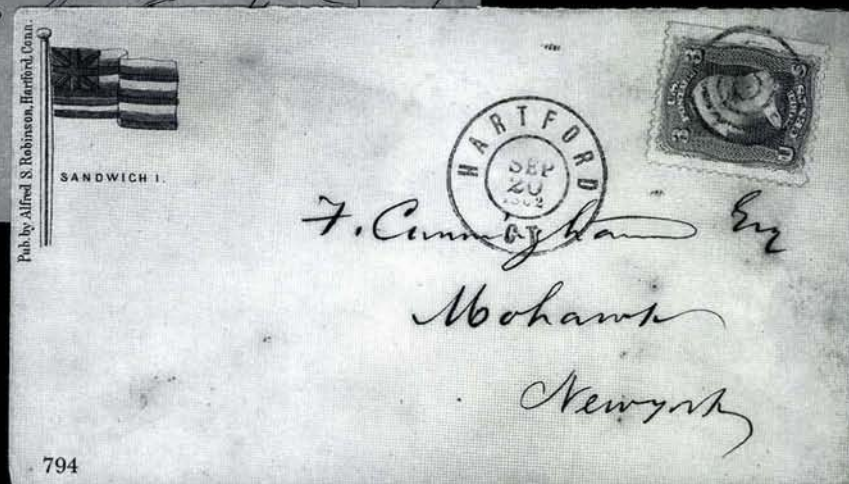 Pub. by Alfred S. Robinson, Hartford, Conn.
SANDWICH I.
HARTFORD
SEP
20
1862
CT.
3 3
F. Cunningham Esq
Mohawk
Newyork
794